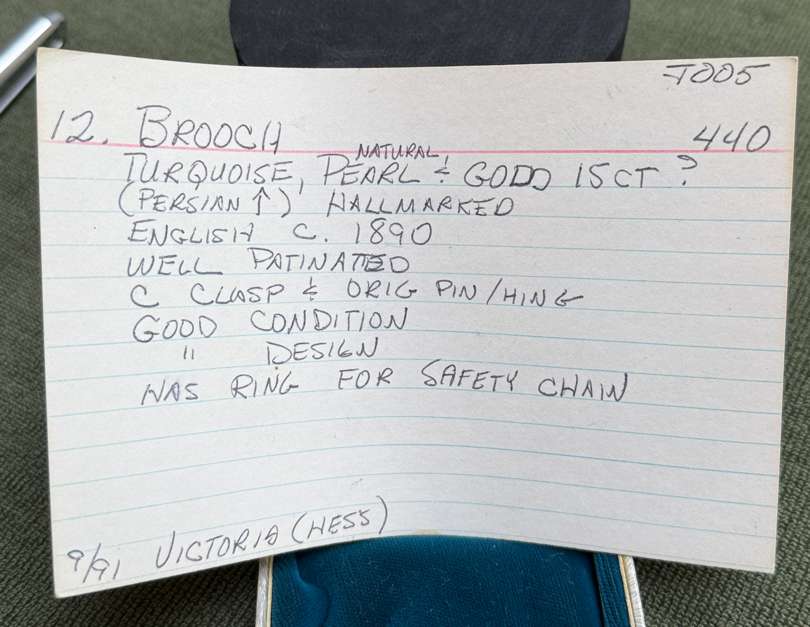 T005
12. BROOCH 440
NATURAL
TURQUOISE, PEARL & GODD 15CT ?
(PERSIAN ↑) HALLMARKED
ENGLISH C. 1890
WELL PATINATED
C CLASP & ORIG PIN/HING
GOOD CONDITION
" DESIGN
HAS RING FOR SAFETY CHAIN
9/91 VICTORIA (HESS)